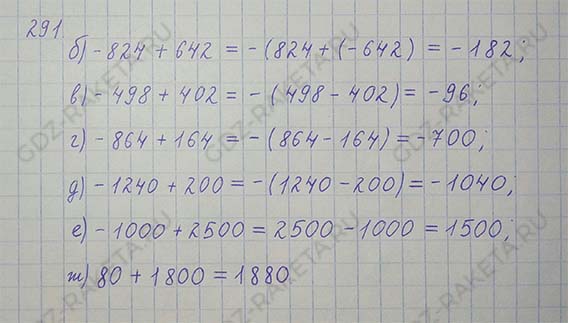 291
б) - 824 + 642 = - (824 + (- 642) = - 182;
в) - 498 + 402 = - (498 - 402) = - 96;
г) - 864 + 164 = - (864 - 164) = - 700;
д) - 1240 + 200 = - (1240 - 200) = - 1040;
е) - 1000 + 2500 = 2500 - 1000 = 1500;
ж) 80 + 1800 = 1880
GDZ-RAKETA.RU